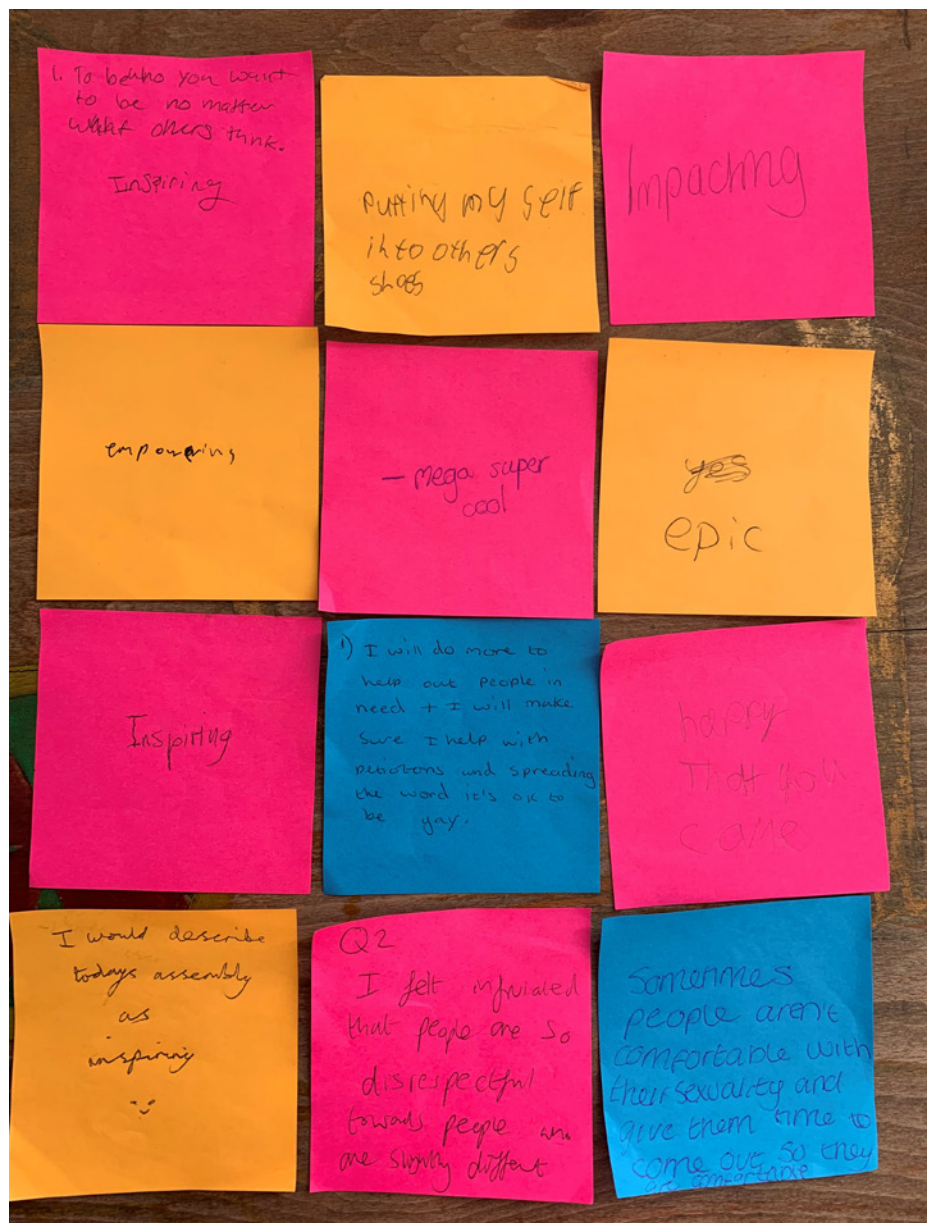 1. To be who you want
to be no matter
what others think.
Inspiring
Putting my self
into others
shoes
Impacting
empowering
- mega super
cool
yes
epic
Inspiring
1) I will do more to
help out people in
need + I will make
sure I help with
petiotons and spreading
the word it's ok to
be gay.
happy
That you
came
I would describe
todays assembly
as
inspiring
Q2
I felt infruiated
that people are so
disrespectful
towads people who
are slightly diffent
Sometimes
people aren't
comfortable with
their sexuality and
give them time to
come out so they
are comfortable